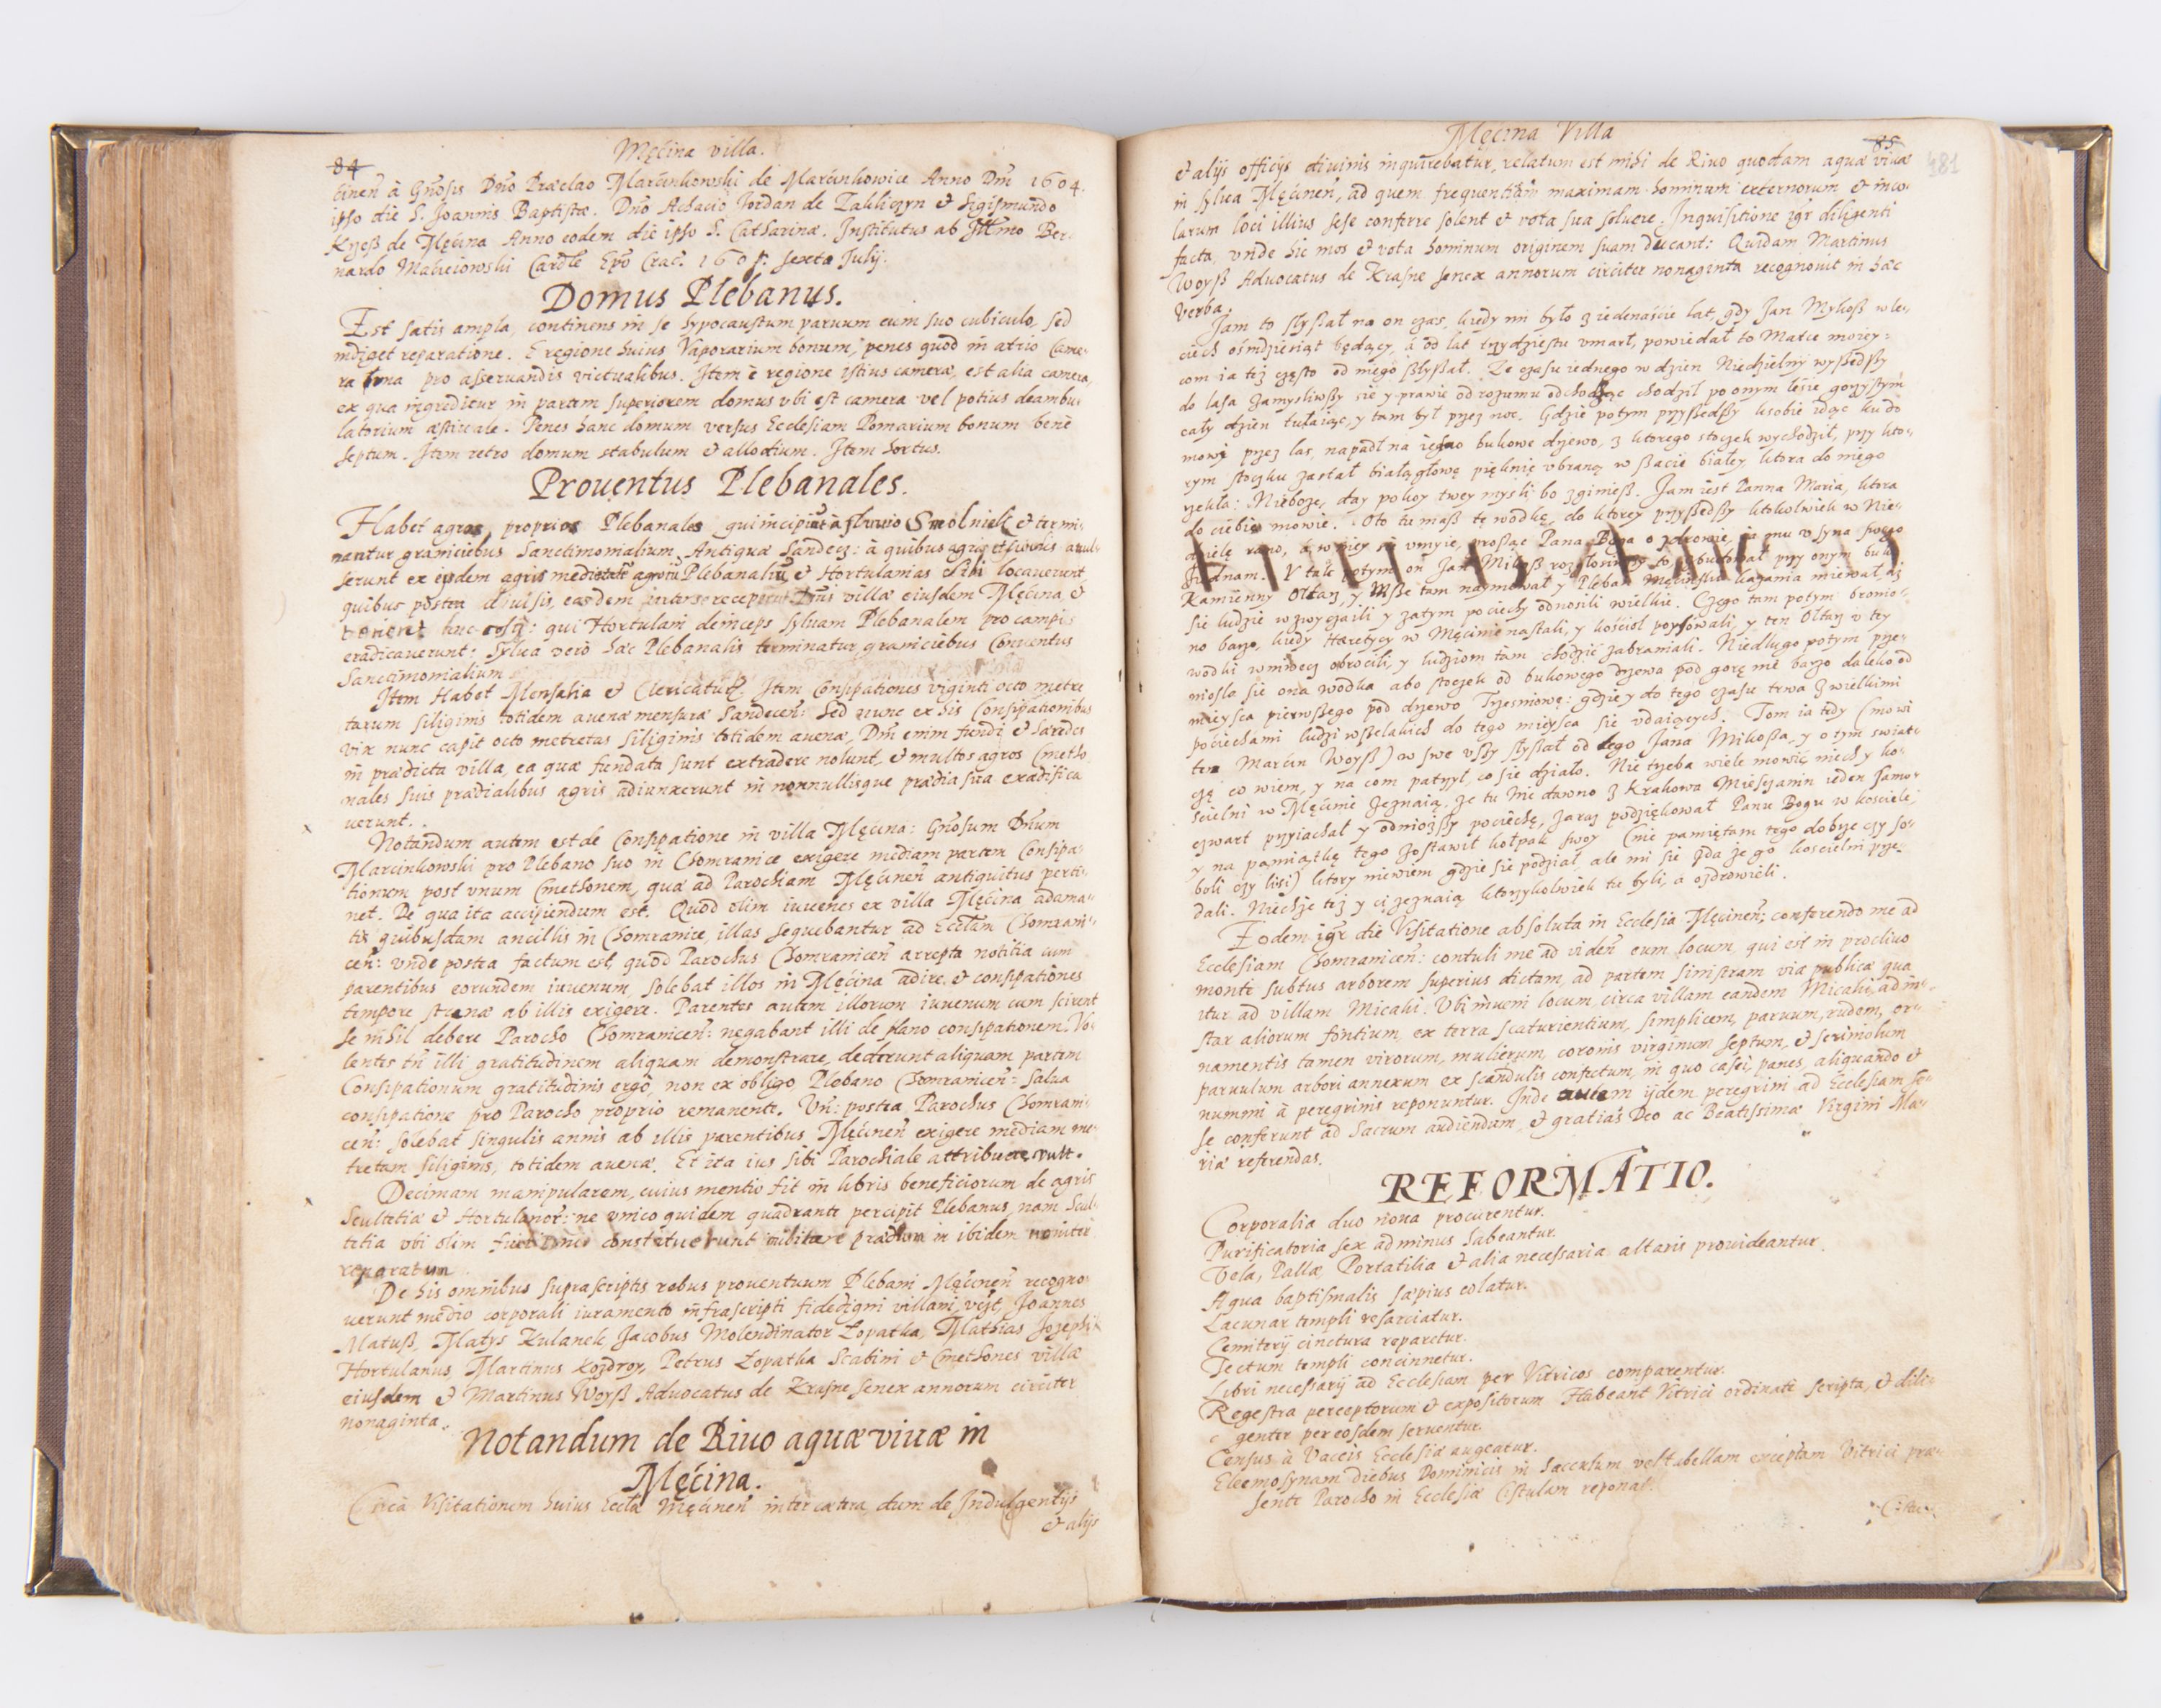 84
Męćina villa.
tineñ à Gñosis Dño Præclao Marćinkowski de Marćinkowice Anno Dñi 1604.
ipso die S. Joannis Baptistæ. Dño Achacio Jordan de Zakliczyn & Sigismundo
Krzesß de Męćina Anno eodem die ipso S. Catharinæ. Institutus ab Illmo Ber-
nardo Maćieiowski Cardle Epõ Crac. 1605: sexta Julij.
Domus Plebanus.
Est satis ampla, continens in se hypocaustum paruum cum suo cubiculo, sed
indiget reparatione. E regione huius Vaporarium bonum, penes quod in atrio Came-
ra una pro asseruandis victualibus. Item è regione istius cameræ, est alia camera,
ex qua ingreditur in partem superiorem domus vbi est camera vel potius deambu-
latorium æstiuale. Penes hanc domum versus Ecclesiam Pomarium bonum bene
septum. Item retro domum stabulum & allodium. Item hortus.
Prouentus Plebanales.
Habet agros proprios Plebanales qui incipiunt à fluuio Smolnik & termi-
nantur graniciebus Sanctimonialium Antiquæ Sandecz: à quibus agris
serunt ex eisdem agris medietatẽ agrorũ Plebanaliũ, & Hortulanias sibi locauerunt
quibus postea diuulsis, easdem villæ eiusdem Męćina &
qui Hortulani deinceps syluam Plebanalem pro campis
eradicauerunt: Sylua verò hæc Plebanalis terminatur graniciebus Conuentus
Sanctimonialium
Item Habet Mensalia & Clericaturã. Item Consipationes viginti octo metre
tarum siliginis totidem auenæ mensuræ Sandeceñ: Sed nunc ex his Consipationibus
vix nunc capit octo metretas siliginis totidem auenæ, Dñi enim fundi & hæredes
in prædicta villa, ea quæ fundata sunt extradere nolunt, & multos agros Cmetho
nales suis prædialibus agris adiunxerunt in nonnullisque prædia sua exædifica
uerunt.
Notandum autem est de Consipatione in villa Męćina: Gñosum Dñum
Marcinkowski pro Plebano suo in Chomranice exigere mediam partem Consipa-
tionem post vnum Cmethonem, quæ ad Parochiam Męćineñ antiquitus perti-
net. De qua ita accipiendum est. Quod olim iuuenes ex villa Męćina adama-
tis quibusdam ancillis in Chomranice, illas sequebantur ad Ecclam Chomrani-
ceñ: vnde postea factum est, quod Parochus Chomraniceñ arrepta notitia cum
parentibus eorundem iuuenum, solebat illos in Męćina adire, & consipationes
tempore strenæ ab illis exigere. Parentes autem illorum iuuenum cum scirent
se nihil debere Parocho Chomraniceñ: negabant illi de plano consipationem. Vo-
lentes tñ illi gratitudinem aliquam demonstrare, dederunt aliquam partem
Consipationum gratitudinis ergò, non ex obligo, Plebano Chomraniceñ: salua
consipatione pro Parocho proprio remanente. Vñ: postea Parochus Chomrani-
ceñ: solebat singulis annis ab illis parentibus Męćineñ exigere mediam me-
tretam siliginis, totidem auenæ. Et ita ius sibi Parochiale attribuere vult.
Decimam manipularem, cuius mentio fit in libris beneficiorum de agris
Scultetiæ & Hortulanorũ: ne vnico quidem quadrante percipit Plebanus, nam Scul-
tetia vbi olim fuit constituerunt militare prædium in ibidem nouiter
reparatum
De his omnibus suprascriptis rebus prouentuum Plebani Męćineñ recogno-
uerunt medio corporali iuramento infrascripti fidedigni villani, vèt, Joannes
Matuß, Matys Kulanek, Jacobus Molendinator Łopatka, Mathias Josephi
Hortulanus, Martinus Kozdroy, Petrus Łopatka Scabini & Cmethones villæ
eiusdem & Martinus Woyß Aduocatus de Krasne senex annorum circiter
nonaginta.
Notandum de Riuo aquæ viuæ in
Męćina.
Circa Visitationem huius Ecclæ Męćineñ inter cætera, dum de Indulgentijs
& alijs
Męćina Villa
85
481
& alijs officijs diuinis inquirebatur, relatum est mihi de Riuo quodam aquæ viuæ
in sylua Męćineñ, ad quem frequentiam maximam hominum externorum & inco-
larum loci illius sese conferre solent & vota sua soluere. Inquisitione igr diligenti
facta, vnde hic mos & vota hominum originem suam ducant: Quidam Martinus
Woyß Aduocatus de Krasne senex annorum circiter nonaginta recognouit in hæc
verba.
Jam to słyßał na on czas, kiedy mi było z iedenaśćie lat, gdy Jan Mykoß w le-
ciech ośmdzieśiąt będący, a od lat trzydziestu vmarł, powiedał to Matce moiey-
com ia też często od niego słyßał. Ze czasu iednego w dzien Niedzielny wyßedßy
do lasa zamysliwßy sie y prawie od rozumu odchodząc chodził po onym leśie gorzystym
cały dzien tułaiąc, y tam był przez noc. Gdzie potym przyßedßy k sobie idąc ku do
mowi przez las, napadł na iedno bukowe drzewo, z ktorego stoczek wychodził, przy kto-
rym stoczku zastał białągłowę pięknię vbraną w ßacie białey, ktora do niego
rzekła: Nieboże, day pokoy twey mysli bo zginieß. Jam iest Panna Maria, ktora
do ciebie mowie. Oto tu maß tę wodkę, do ktorey przyßedßy ktokolwiek w Nie-
dzielę rano, a w niey sie vmyie, prosząc Pana Boga o zdrowie, ia mu v syna swego
ziednam. Y tak potym on Jan Mikoß rozgłosiwßy to zbudował przy onym buku
Kamienny Ołtarz, y Mßze tam naymował y Pleban Męćinski kazania miewał, aż
sie ludzie wzwyczaili y zatym pociechy odnosili wielkie. Czego tam potym bronio-
no barzo, kiedy Hæretycy w Męćinie nastali, y kośćioł popsowali, y ten Ołtarz v tey
wodki wniwecz obroćili, y ludziom tam chodzić zabraniali. Niedługo potym prze-
niosła sie ona wodka abo stoczek od bukowego drzewa pod gorę nie barzo daleko od
mieysca pierwßego pod drzewo Trzesniowę: gdzie y do tego czasu trwa z wielkimi
pociechami ludzi wßelakich do tego mieysca sie vdaiących. Tom ia tedy (mowi
ten Marćin Woyß) w swe vßy słyßał od tego Jana Mikoßa, y o tym swiad-
czę co wiem, y na com patrzył, co sie działo. Nie trzeba wiele mowić, niech y ko-
śćielni w Męćinie zeznaią, że tu nie dawno z Krakowa Mieszczanin ieden samo-
czwart przyiachał y odniozßy pociechę, zaraz podziękował Panu Bogu w kosciele,
y na pamiątkę tego zostawił kołpak swoy (nie pamiętam tego dobrze czy so-
boli czy lisi) ktory niewiem gdzie sie podział, ale mi sie zda że go kosćielni prze-
dali. Niechże też y ci zeznaią ktorzykolwiek tu byli, a ozdrowieli.
Eodem igr die Visitatione absoluta in Ecclesia Męćineñ; conferendo me ad
Ecclesiam Chomraniceñ: contuli me ad videñ eum locum, qui est in procliuo
monte subtus arborem superius dictam, ad partem sinistram viæ publicæ qua
itur ad villam Micahi. Vbi inueni locum, circa villam eandem Micahi, ad in-
star aliorum fontium, ex terra scaturientium, simplicem, paruum, rudem, or-
namentis tamen virorum, mulierum, coronis virginum septum, & scriniolum
paruulum arbori annexum ex scandulis confectum, in quo casei, panes, aliquando &
nummi à peregrinis reponuntur. Inde autem ijdem peregrini ad Ecclesiam se-
se conferunt ad Sacrum audiendum, & gratias Deo ac Beatissimæ Virgini Ma-
riæ referendas.
REFORMATIO.
Corporalia duo noua procurentur.
Purificatoria sex ad minus habeantur.
Vela, Pallæ, Portatilia & alia necessaria altaris prouideantur.
Aqua baptismalis sæpius colatur.
Lacunar templi resarciatur.
Cemiterij cinctura reparetur.
Tectum templi concinnetur.
Libri necessarij ad Ecclesiam per Vitricos comparentur.
Regestra perceptorum & expositorum Habeant Vitrici ordinatè scripta, & dili-
genter per eosdem seruentur.
Census à Vaccis Ecclesiæ augeatur.
Eleemosynam diebus Dominicis in sacculum vel tabellam exceptam Vitrici præ-
sente Parocho in Ecclesiæ Cistulam reponat.